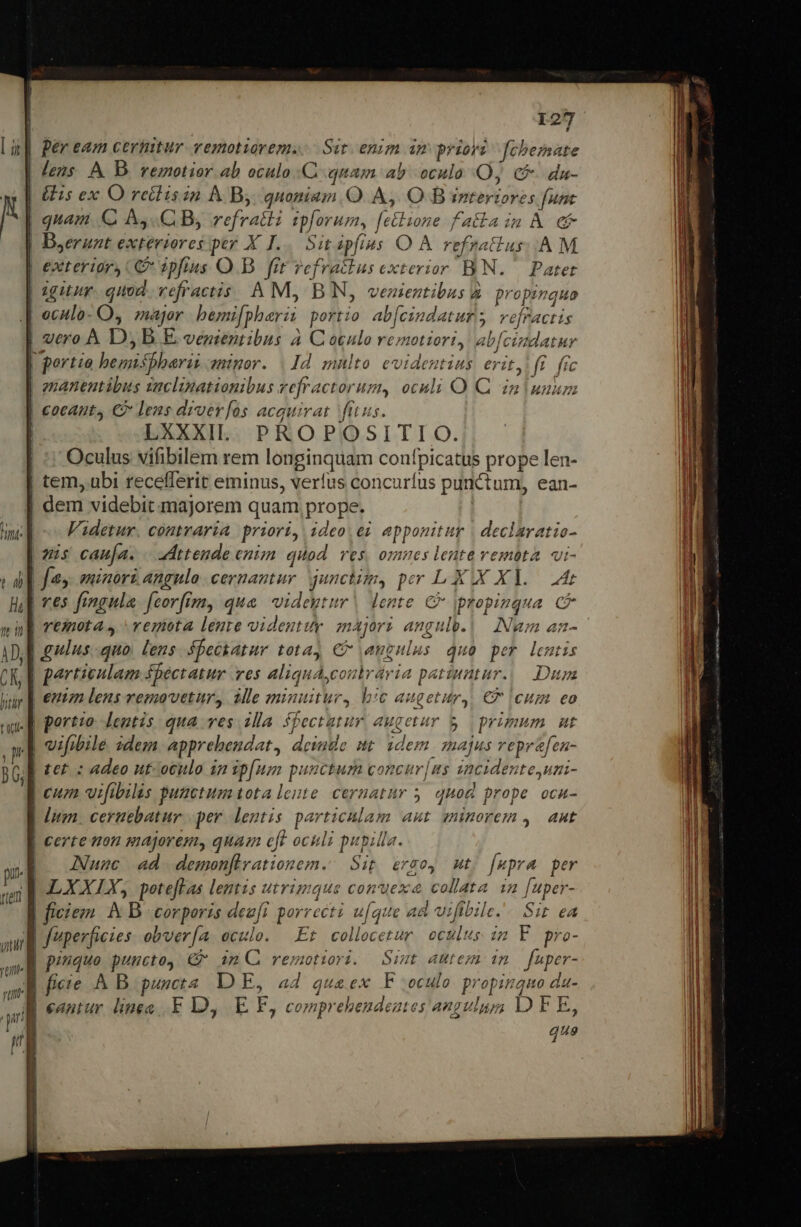 127
per eam cernitur remotiorem. Sit enim in priori schemate
lens A B remotior ab oculo C quam ab oculo O, & du-
ctis ex O rectis in A B, quoniam O A, O B interiores sunt
quam C A, C B, refracti ipsorum, sectione facta in A &
B, erunt exteriores per X I. Sit ipsius O A refractus A M
exterior, & ipsius O B fit refractus exterior B N. Patet
igitur quod refractis A M, B N, venientibus à propinquo
oculo O, major hemisphærii portio abscindatur; refractis
vero A D, B E venientibus à C oculo remotiori, abscindatur
portio hemisphærii minor. Id multo evidentius erit, si sic
manentibus inclinationibus refractorum, oculi O C in unum
coeant, & lens diversos acquirat situs.
LXXXII. PROPOSITIO.
Oculus visibilem rem longinquam conspicatus prope len-
tem, ubi recesserit eminus, versus concursus punctum, ean-
dem videbit majorem quam prope.
Videtur contraria priori, ideo ei apponitur declaratio-
nis causa. Attende enim quod res omnes lente remota vi-
sæ, minori angulo cernantur junctim, per LXXXI. At
res singulæ seorsim, quæ videntur lente & propinqua &
remota, remota lente videntur majori angulo. Nam an-
gulus quo lens spectatur tota, & angulus quo per lentis
particulam spectatur res aliqua, contraria patiuntur. Dum
enim lens removetur, ille minuitur, hic augetur, & cum eo
portio lentis qua res illa spectatur augetur; primum ut
visibile idem apprehendat, deinde ut idem majus repræsen-
tet: adeo ut oculo in ipsum punctum concursus incidente, uni-
cum visibilis punctum tota lente cernatur; quod prope ocu-
lum cernebatur per lentis particulam aut minorem, aut
certe non majorem, quam est oculi pupilla.
Nunc ad demonstrationem. Sit ergo, ut supra per
LXXIX, potestas lentis utrimque convexæ collata in super-
ficiem A B corporis densi porrecti usque ad visibile. Sit ea
superficies obversa oculo. Et collocetur oculus in F pro-
pinquo puncto, & in C remotiori. Sint autem in super-
ficie A B puncta D E, ad quæ ex F oculo propinquo du-
cantur lineæ F D, E F, comprehendentes angulum D F E,
quo